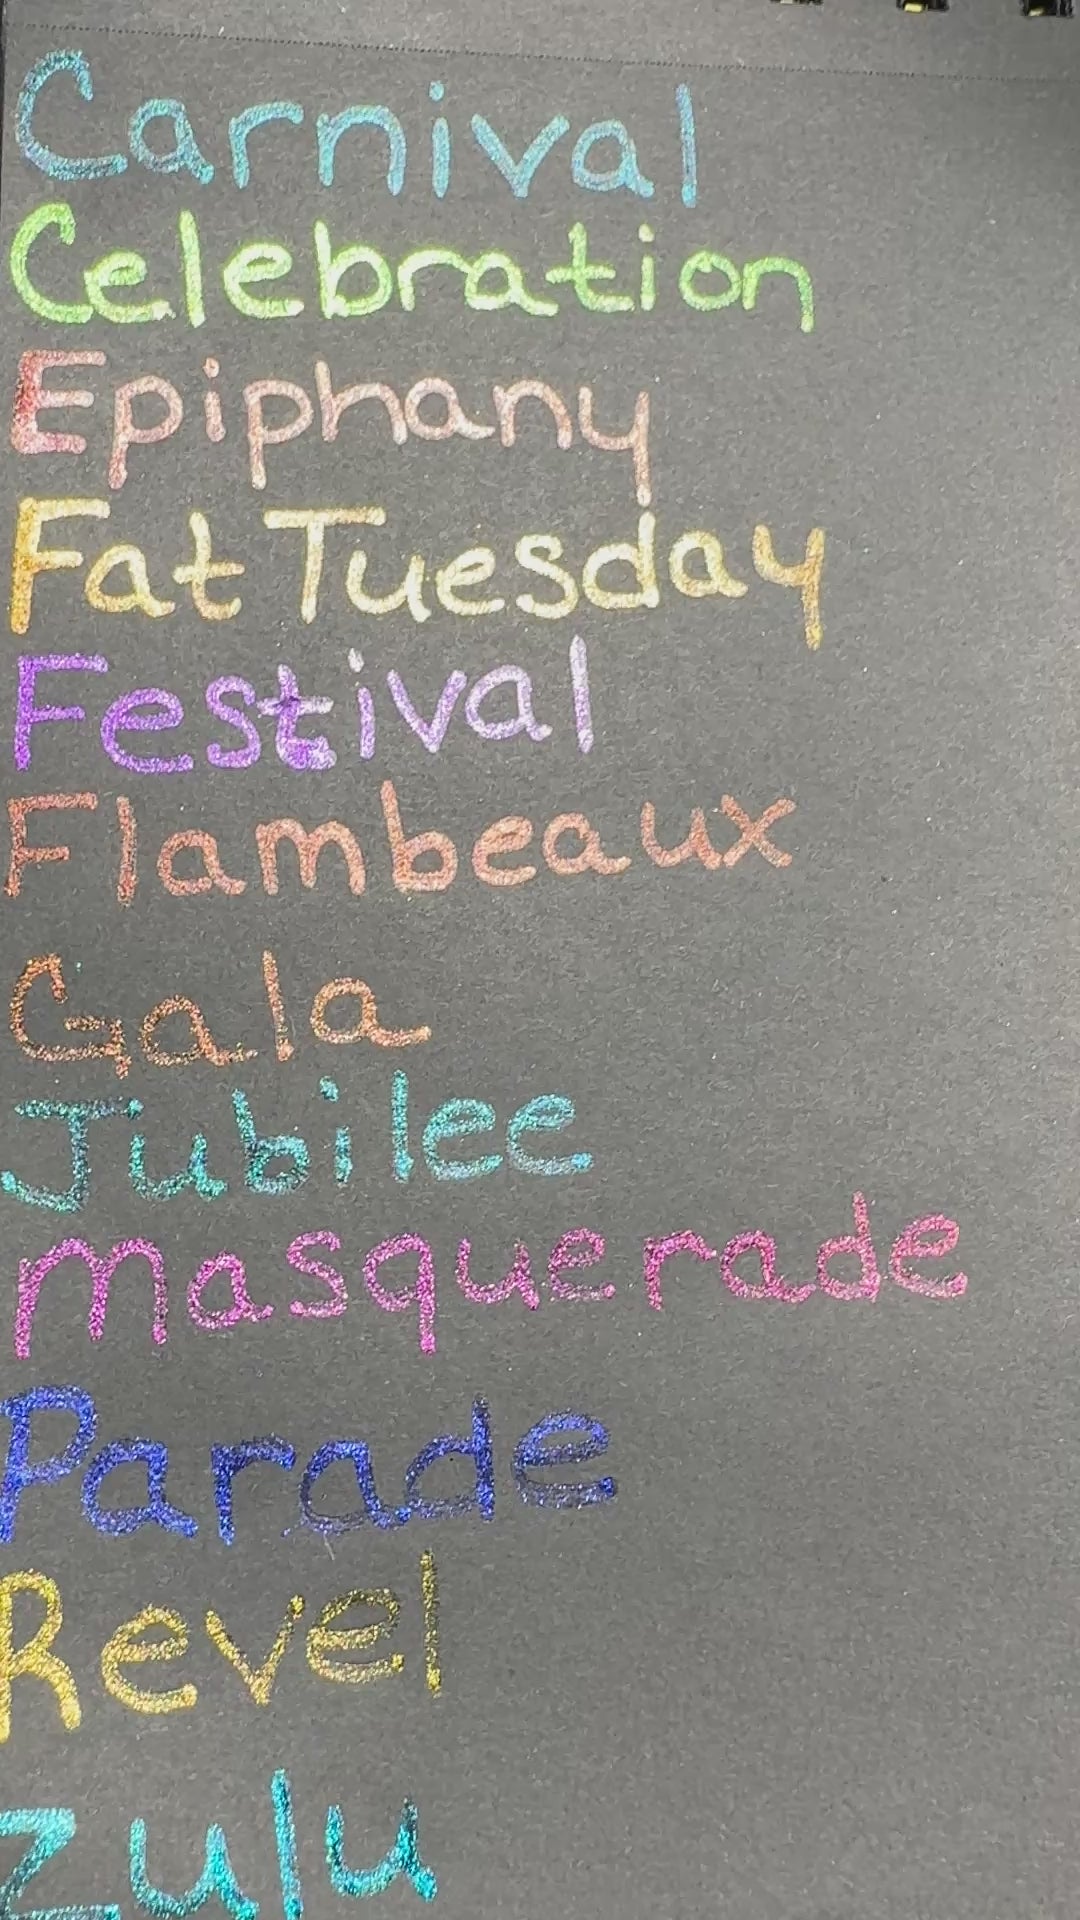 Carnival
Celebration
Epiphany
Fat Tuesday
Festival
Flambeaux
Gala
Jubilee
Masquerade
Parade
Revel
Zulu